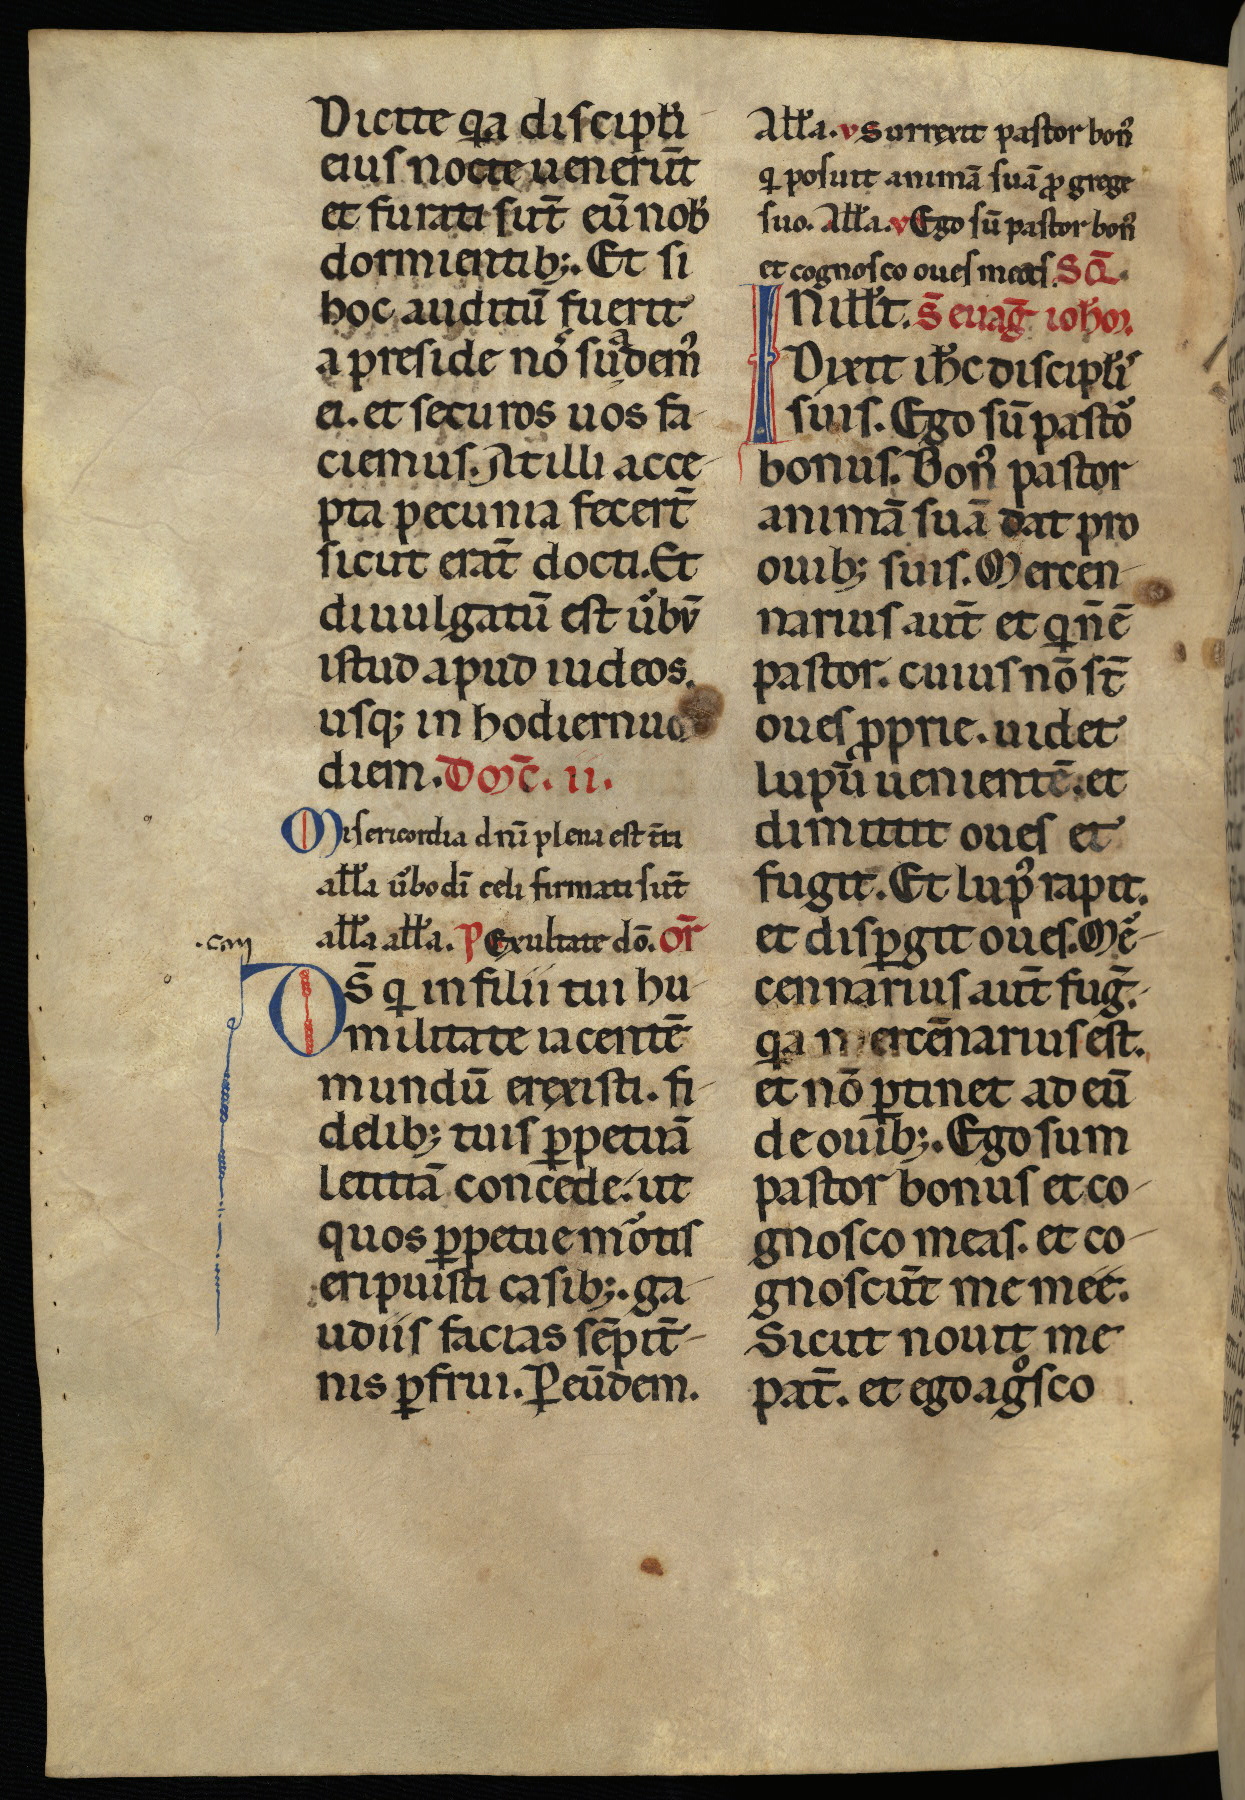 Dicite qa discipli
eius nocte uenerūt
et furati sūt eū nob
dormientib;. Et si
hoc auditū fuerit
a preside nō suademꝰ
ei. et securos uos fa
ciemus. At illi acce
pta pecunia fecert̄
sicut erāt docti. Et
diuulgatū est ūbū
istud apud iudeos.
usq; in hodiernū
diem. Dom̄c. ii.
Misericordia dnī plena est t̄ra
all'a ūbo dī celi firmati sūt
all'a all'a. P exultate dō. Or̄
.can
Ds̄ q in filii tui hu
militate iacentē
mundū erexisti. fi
delib; tuis ꝑpetuā
letitiā concede. ut
quos ꝑpetue mortis
eripuisti casib;. ga
udiis facias sēpit̄
nis ꝑfrui. Ꝑ eūdem.
All'a. v Surrexit pastor bonꝰ
q posuit animā suā ꝓ grege
suo. All'a. v Ego sū pastor bonꝰ
et cognosco oues meas. Sc̄a.
In ill't. S euāg ioh'm.
Dixit ih'c discipl'is
suis. Ego sū pastor
bonus. Bonꝰ pastor
animā suā dat pro
ouib; suis. Mercen
narius aut̄ et q n̄ ē
pastor. cuius nō st̄
oues ꝓprie. uidet
lupū uenientē. et
dimittit oues et
fugit. Et lupꝰ rapit.
et disꝑgit oues. Mer
cennarius aut̄ fuḡ.
qa mercēnarius est.
et nō ꝑtinet ad eū
de ouib;. Ego sum
pastor bonus et co
gnosco meas. et co
gnoscūt me mee.
Sicut nouit me
pat̄. et ego agosco